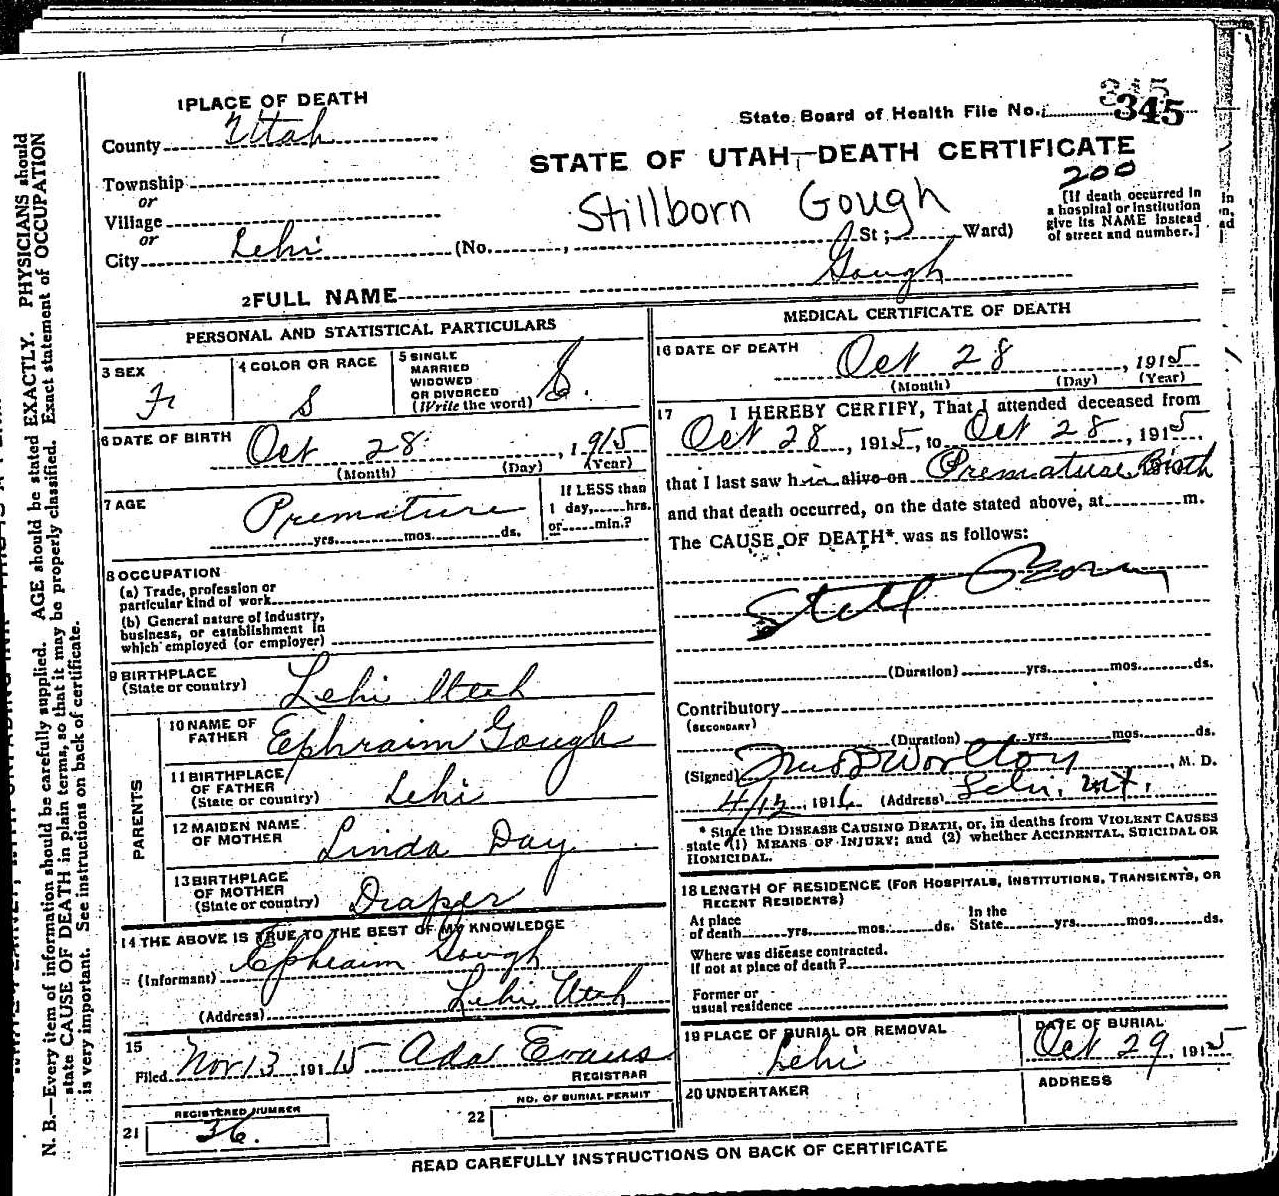 345
State Board of Health File No. 345
STATE OF UTAH—DEATH CERTIFICATE
200
1 PLACE OF DEATH
County Utah
Township
or
Village
or
City Lehi (No. , St; Ward)
Stillborn Gough
[If death occurred in
a hospital or institution
give its NAME instead
of street and number.]
Gough
2 FULL NAME
PERSONAL AND STATISTICAL PARTICULARS
3 SEX
F
4 COLOR OR RACE
S
5 SINGLE
MARRIED
WIDOWED
OR DIVORCED
(Write the word)
S.
6 DATE OF BIRTH
Oct 28 , 1915
(Month) (Day) (Year)
7 AGE
Premature
yrs. mos. ds.
If LESS than
1 day, hrs.
or min.?
8 OCCUPATION
(a) Trade, profession or
particular kind of work
(b) General nature of industry,
business, or establishment in
which employed (or employer)
9 BIRTHPLACE
(State or country) Lehi Utah
PARENTS
10 NAME OF
FATHER Ephraim Gough
11 BIRTHPLACE
OF FATHER
(State or country) Lehi
12 MAIDEN NAME
OF MOTHER Linda Day
13 BIRTHPLACE
OF MOTHER
(State or country) Draper
14 THE ABOVE IS TRUE TO THE BEST OF MY KNOWLEDGE
(Informant) Ephraim Gough
(Address) Lehi Utah
15
Filed Nov 13 191 15 Ada Evans
REGISTRAR
REGISTERED NUMBER
21 36.
NO. OF BURIAL PERMIT
22
MEDICAL CERTIFICATE OF DEATH
16 DATE OF DEATH
Oct 28 , 1915
(Month) (Day) (Year)
17 I HEREBY CERTIFY, That I attended deceased from
Oct 28 , 1915, to Oct 28 , 1915.
that I last saw h alive on Premature Birth
and that death occurred, on the date stated above, at m.
The CAUSE OF DEATH* was as follows:
Still Born
(Duration) yrs. mos. ds.
Contributory
(SECONDARY)
(Duration) yrs. mos. ds.
(Signed) Worlton , M. D.
4/12 , 1916 (Address) Lehi, Ut.
* State the DISEASE CAUSING DEATH, or, in deaths from VIOLENT CAUSES
state (1) MEANS OF INJURY; and (2) whether ACCIDENTAL, SUICIDAL OR
HOMICIDAL.
18 LENGTH OF RESIDENCE (FOR HOSPITALS, INSTITUTIONS, TRANSIENTS, OR
RECENT RESIDENTS)
At place
of death yrs. mos. ds.
In the
State yrs. mos. ds.
Where was disease contracted.
If not at place of death?
Former or
usual residence
19 PLACE OF BURIAL OR REMOVAL
Lehi
DATE OF BURIAL
Oct 29, 1915
20 UNDERTAKER
ADDRESS
READ CAREFULLY INSTRUCTIONS ON BACK OF CERTIFICATE
N. B.—Every item of information should be carefully supplied. AGE should be stated EXACTLY. PHYSICIANS should
state CAUSE OF DEATH in plain terms, so that it may be properly classified. Exact statement of OCCUPATION
is very important. See instructions on back of certificate.